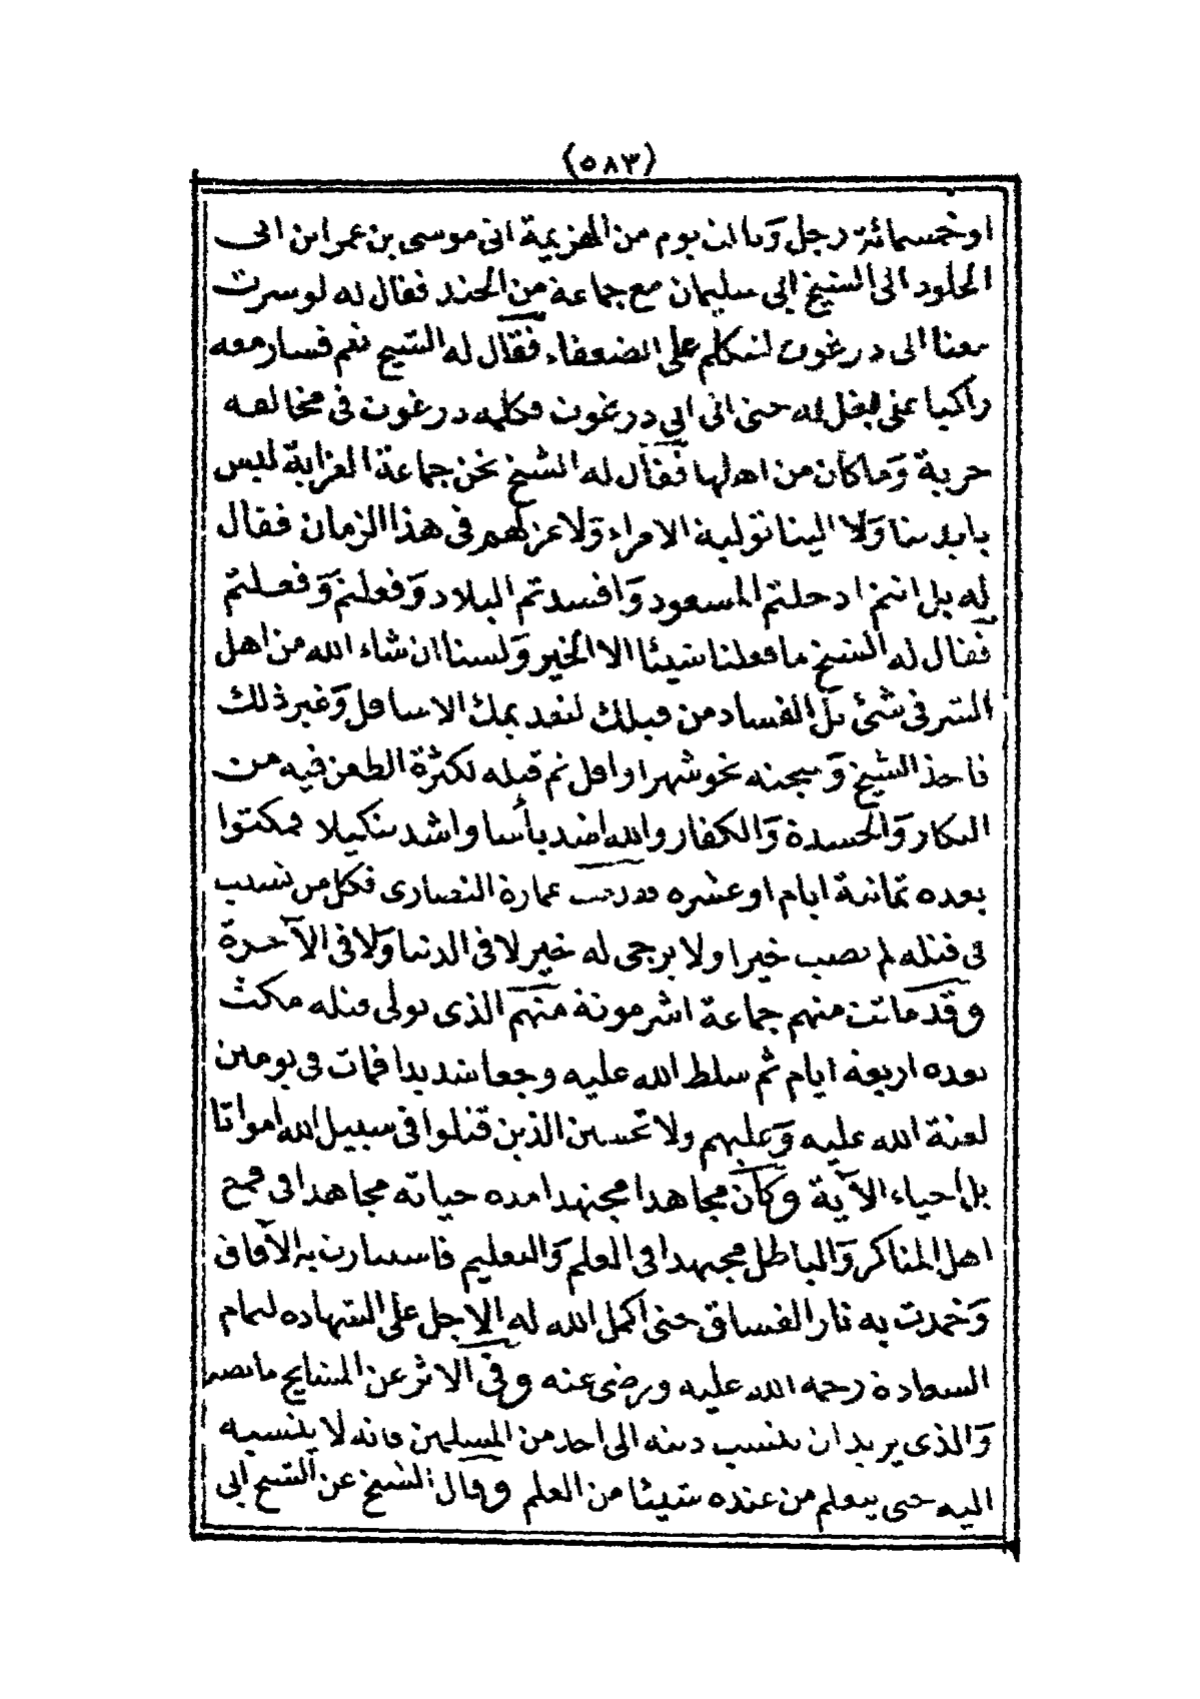 (٥٨٣)
او خمسمائة رجل وثالث يوم من الهزيمة اتى موسى بن عمران ابى
الجلود الى الشيخ ابى سليمان مع جماعة من الجند فقال له لو سرت
معنا الى درغوت لنتكلم على الضعفاء فقال له الشيخ نعم فسار معه
راكبا على بغل له حتى اتى الى درغوت فكلمه درغوت فى مخالفة
جربة وما كان من اهلها فقال له الشيخ نحن جماعة العزابة ليس
بايدينا ولا الينا تولية الامراء ولا عزلهم فى هذا الزمان فقال
له بل انتم ادخلتم المسعود وافسدتم البلاد وفعلتم وفعلتم
فقال له الشيخ ما فعلنا شيئا الا الخير ولسنا ان شاء الله من اهل
الشر فى شئ بل الفساد من قبلك لتقديمك الاسافل وغير ذلك
فاخذ الشيخ وسجنه نحو شهر او اقل ثم قتله لكثرة الطعن فيه من
النكار والحسدة والكفار والله اشد بأسا واشد تنكيلا فمكثوا
بعده ثمانية ايام او عشره عمارة النصارى فكل من تسبب
فى قتله لم يصب خيرا ولا يرجى له خير لا فى الدنيا ولا فى الآخرة
وقد ماتت منهم جماعة اشر موتة منهم الذى تولى قتله مكث
بعده اربعة ايام ثم سلط الله عليه وجعا شديدا فمات فى يومين
لعنة الله عليه وعليهم ولا تحسبن الذين قتلوا فى سبيل الله امواتا
بل احياء الآية وكان مجاهدا مجتهدا مدة حياته مجاهدا فى قمع
اهل المناكر والباطل مجتهدا فى العلم والتعليم فاستنارت به الآفاق
وخمدت به نار الفساق حتى اكمل الله له الاجل على الشهاده لتمام
السعادة رحمه الله عليه ورضى عنه وفى الاثر عن المشايخ ما نصه
والذى يريد ان ينسب دينه الى احد من المسلمين فانه لا ينسبه
اليه حتى يتعلم من عنده شيئا من العلم وقال الشيخ عن الشيخ ابى